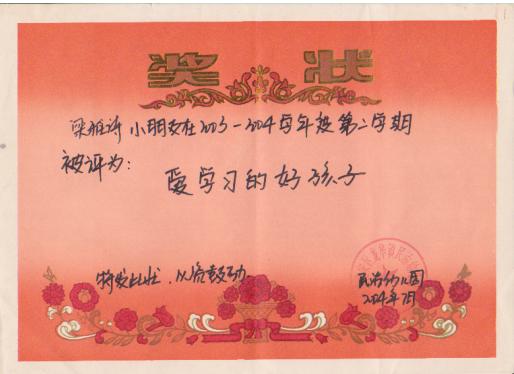 奖状
梁雅诗小朋友在2003-2004学年度第二学期
被评为：
爱学习的好孩子
特发此状，以资鼓励
民治幼儿园
2004年7月